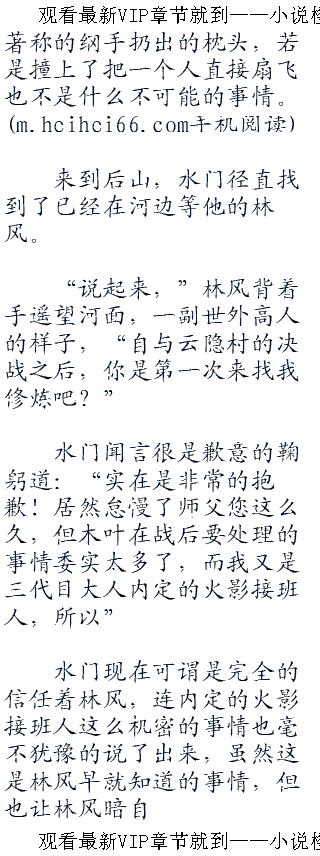 观看最新VIP章节就到——小说检
著称的纲手扔出的枕头，若
是撞上了把一个人直接扇飞
也不是什么不可能的事情。
(m.hcihci66.com手机阅读)
来到后山，水门径直找
到了已经在河边等他的林
风。
“说起来，”林风背着
手遥望河面，一副世外高人
的样子，“自与云隐村的决
战之后，你是第一次来找我
修炼吧？”
水门闻言很是歉意的鞠
躬道：“实在是非常的抱
歉！居然怠慢了师父您这么
久，但木叶在战后要处理的
事情委实太多了，而我又是
三代目大人内定的火影接班
人，所以”
水门现在可谓是完全的
信任着林风，连内定的火影
接班人这么机密的事情也毫
不犹豫的说了出来，虽然这
是林风早就知道的事情，但
也让林风暗自
观看最新VIP章节就到——小说检